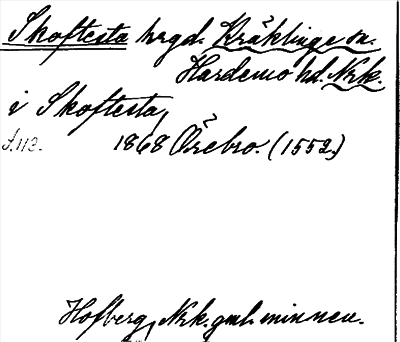 Skoftesta hrgd. Kräklinge sn.
Hardemo hd. Nrk.
i Skoftesta,
s. 113. 1868 Örebro. (1552.)
Hofberg, Nrk. gml. minnen.